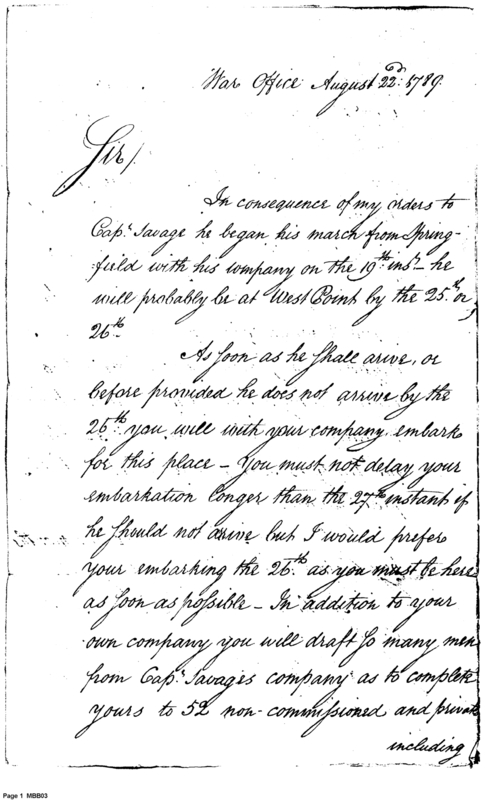 War Office August 22d. 1789.
Sir/
In consequence of my orders to
Capt. Savage he began his march from Spring-
field with his company on the 19th inst— he
will probably be at West Point by the 25th or
26th
As soon as he shall arive, or
before provided he does not arrive by the
26th you will with your company embark
for this place — You must not delay your
embarkation longer than the 27th instant if
he should not arive but I would prefer
your embarking the 26th as you must be here
as soon as possible — In addition to your
own company you will draft so many men
from Capt. Savages company as to complete
yours to 52 non-commissioned and private
including
Page 1 MBB03